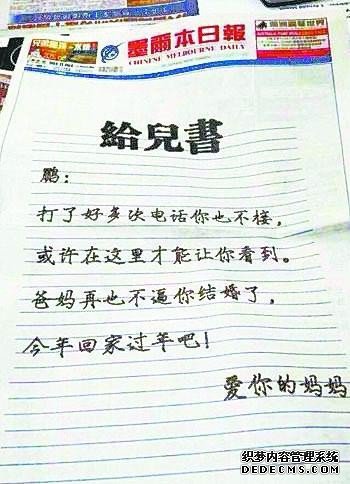 墨爾本日報
CHINESE MELBOURNE DAILY
給兒書
鹏：
打了好多次电话你也不接，
或许在这里才能让你看到。
爸妈再也不逼你结婚了，
今年回家过年吧！
爱你的妈妈
织梦内容管理系统
DEDECMS.COM